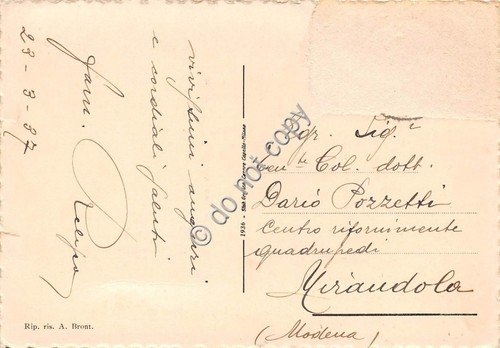 vivissimi auguri
e cordiali saluti
Fam.
23-3-37
Rip. ris. A. Bront.
1936
do not copy
Egr. Sig.r
Ten.te Col. dott.
Dario Pozzetti
Centro rifornimento
quadrupedi
Mirandola
(Modena)